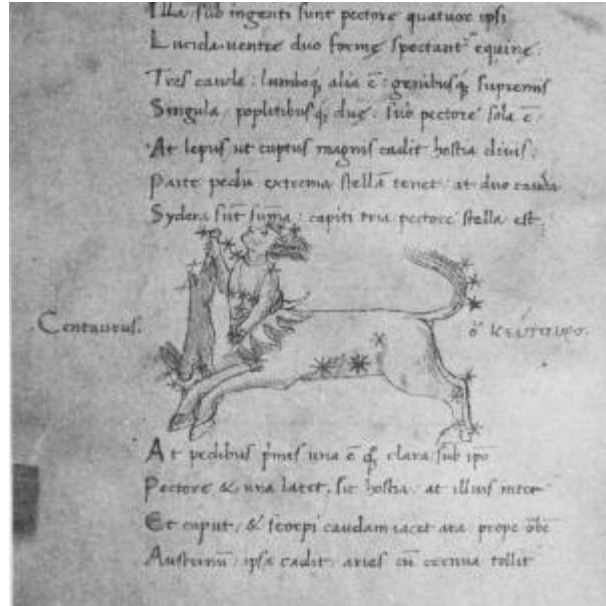 Illa sub ingenti sunt pectore quatuor ipsi
Lucida ventre duo formę spectant᷑ equinę:
Tres cauda: lumboq; alia ē: genibusq; supremis
Singula: poplitibusq; duę: sub pectore sola ē:
At lepus ut captus magnis cadit hostia divis:
Parte pedū extrema stellā tenet: at duo cauda
Sydera sūt sūma: capiti tria pectore stella est:
Centaurus. ὁ κενταυρο.
At pedibus pmis una ē q; clara sub ipō
Pectore & una latet, sic hostia: at illius inter
Et caput, & scorpi caudam iacet ara prope
Austrinū: ipsa cadit: aries cū cornua tollit